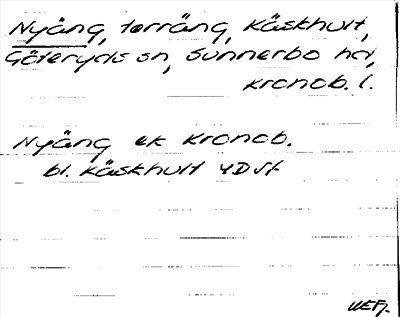 Nyäng, terräng, Käskhult,
Göteryds sn, Sunnerbo hd,
Kronob. l.
Nyäng ek Kronob.
bl. Käskhult 4D5f